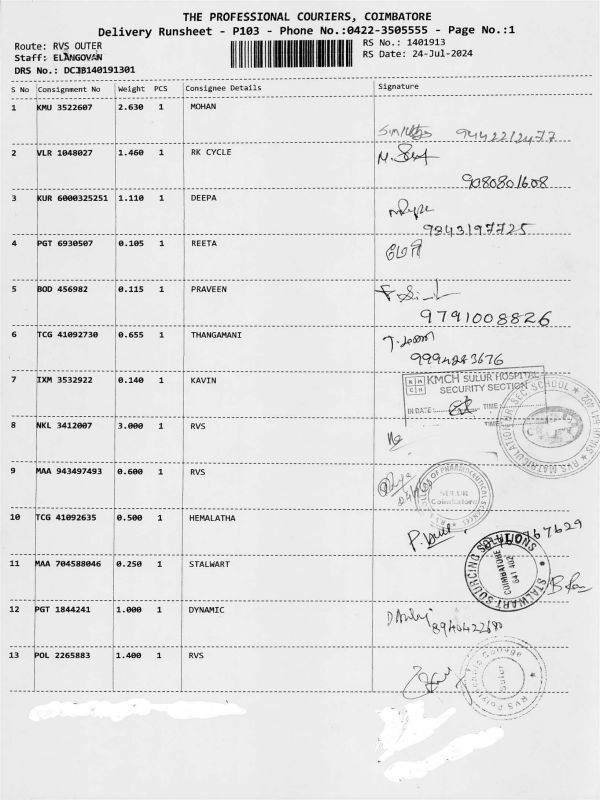 THE PROFESSIONAL COURIERS, COIMBATORE
Delivery Runsheet - P103 - Phone No.:0422-3505555 - Page No.:1
Route: RVS OUTER
RS No.: 1401913
Staff: ELANGOVAN
RS Date: 24-Jul-2024
DRS No.: DCJB140191301
S No Consignment No Weight PCS Consignee Details Signature
1 KMU 3522607 2.630 1 MOHAN
9442212477
2 VLR 1048027 1.460 1 RK CYCLE
9080801608
3 KUR 6000325251 1.110 1 DEEPA
9843197725
4 PGT 6930507 0.105 1 REETA
5 BOD 456982 0.115 1 PRAVEEN
9791008826
6 TCG 41092730 0.655 1 THANGAMANI
9994283676
7 IXM 3532922 0.140 1 KAVIN
KMCH SULUR HOSPITAL
SECURITY SECTION
IN DATE: TIME:
TIME:
RVS MATRICULATION HR. SEC. SCHOOL
8 NKL 3412007 3.000 1 RVS
9 MAA 943497493 0.600 1 RVS
COLLEGE OF PHARMACEUTICAL SCIENCES
SULUR
Coimbatore
10 TCG 41092635 0.500 1 HEMALATHA
11 MAA 704588046 0.250 1 STALWART
STALWART SOURCING SOLUTIONS
COIMBATORE
641 402
12 PGT 1844241 1.000 1 DYNAMIC
13 POL 2265883 1.400 1 RVS
RVS Polytechnic College
Sulur